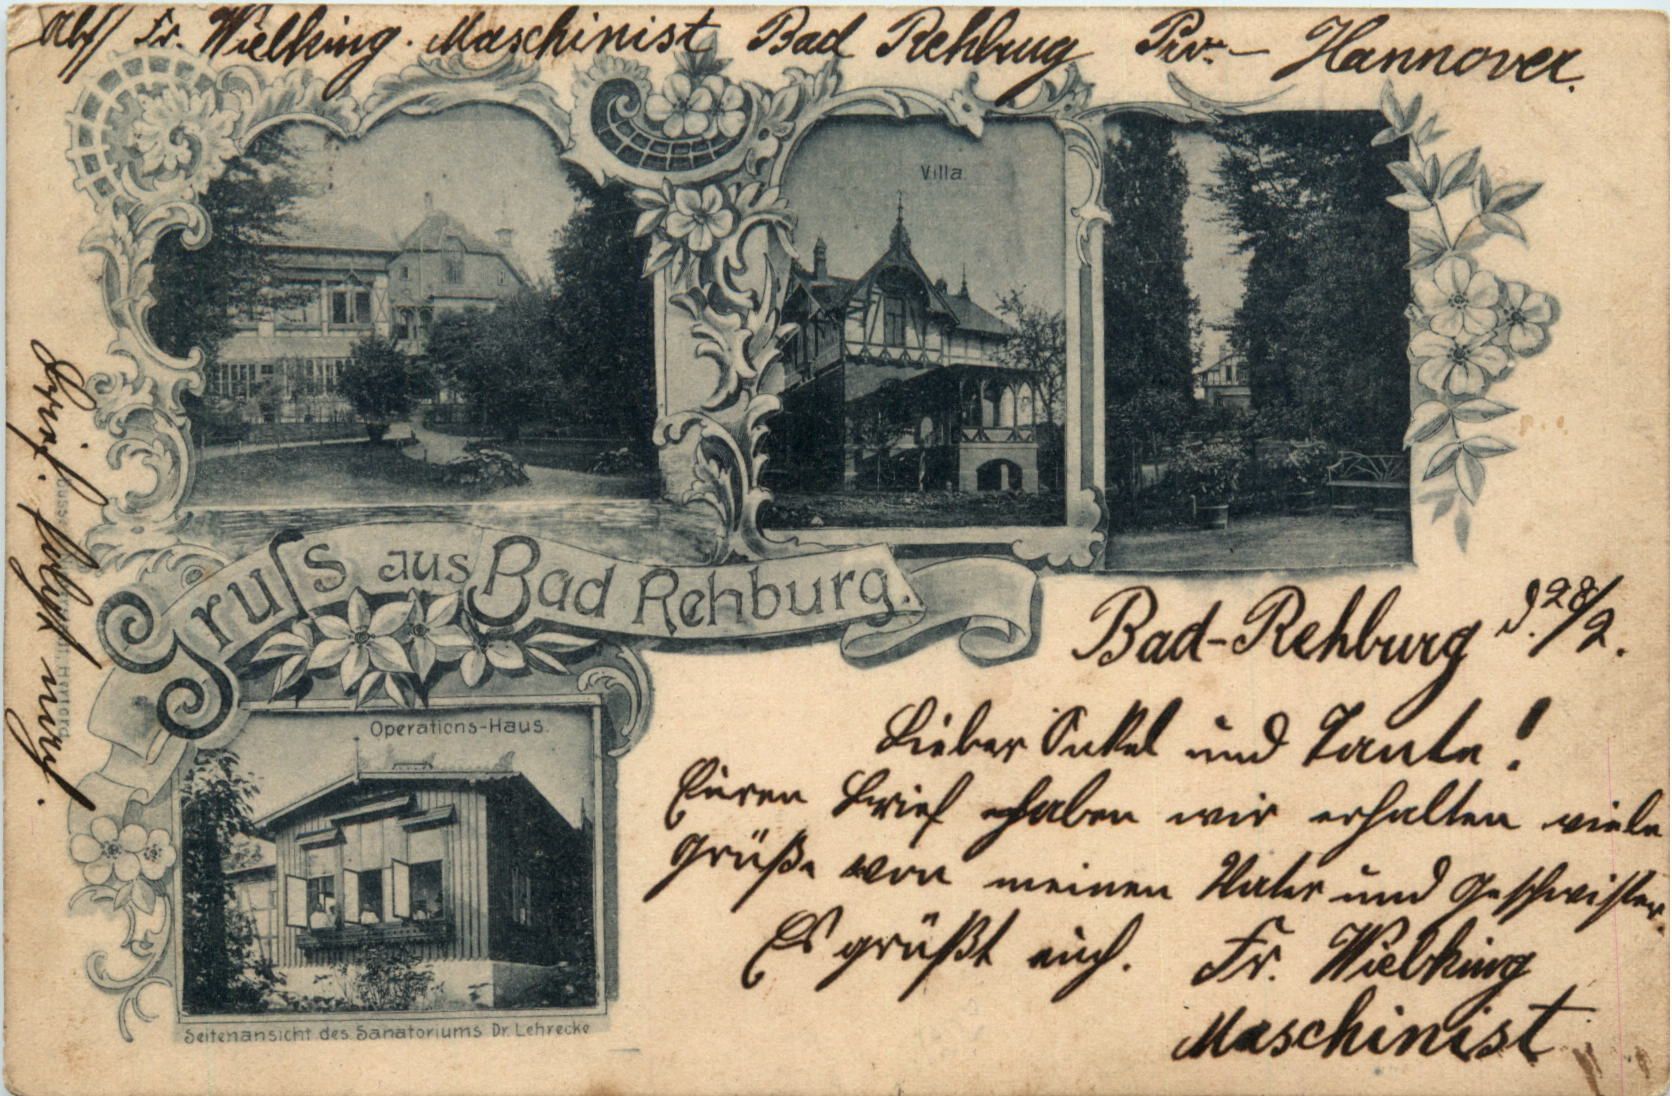 Abs. Fr. Wielking. Maschinist Bad Rehbrug Prv.- Hannover.
Villa.
Gruss aus Bad Rehburg.
Bad-Rehburg d. 28/2.
Operations-Haus.
Lieber Onkel und Tante!
Euren Brief haben wir erhalten viele
Grüße von meinen Vater und Geschwister.
Es grüßt euch. Fr. Wielking
Maschinist
Seitenansicht des Sanatoriums Dr. Lehrecke
Brief. folgt nach.